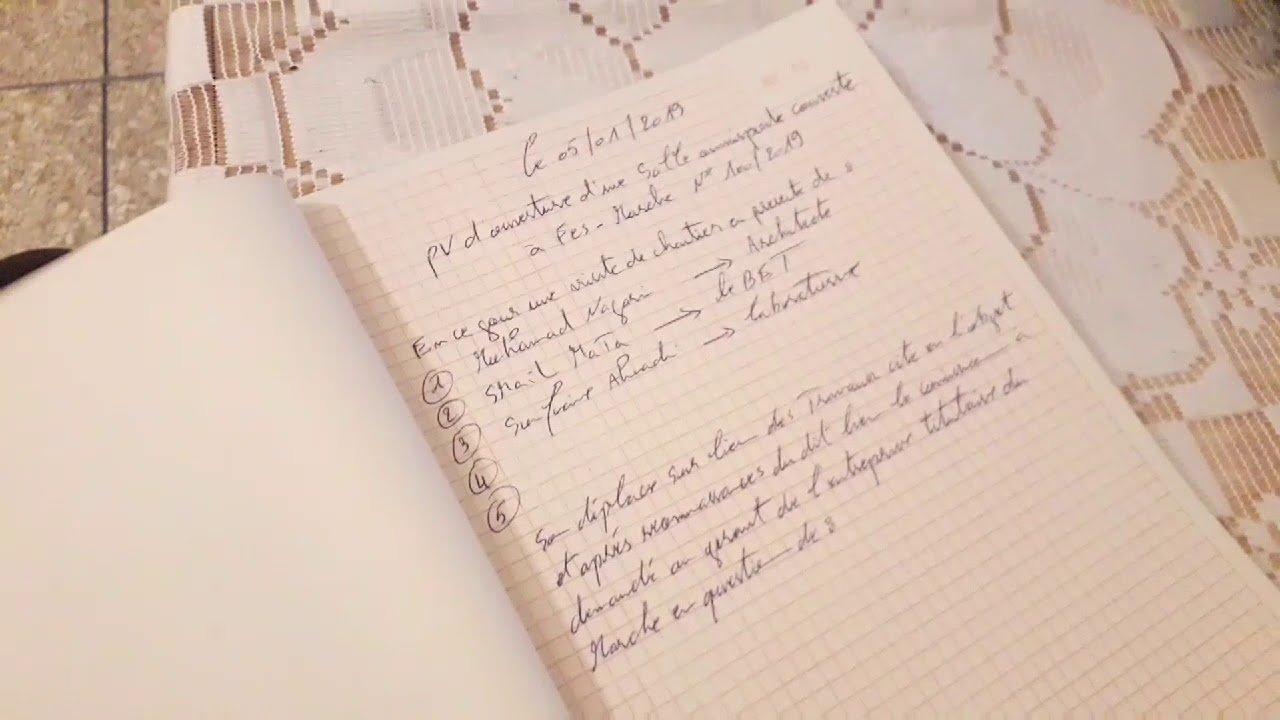 le 05/01/2019
PV d'ouverture d'une Salle omnisports couverte
à Fes - Marche N° 100/2019
En ce jour une visite de chantier en présente de :
① Mohamad Nagori → Architecte
② Smail MaTa → le BET
③ Soufiane → laboratoire
④
⑤
Son déplace sur lieu des Travaux cite en l'objet
et après reconnaissances du dit lieu la commission a
demandé au gerant de l'entreprise titulaire du
Marche en question de :